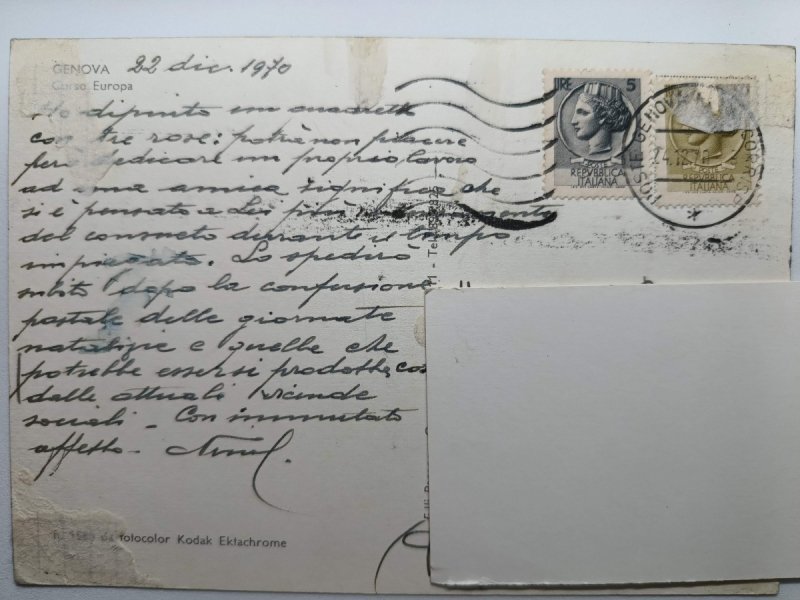 GENOVA 22 dic. 1970
Corso Europa
Ho dipinto un quadretto
con tre rose: potrà non piacere
però dedicare un proprio lavoro
ad una amica significa che
si è pensato a Lei più
del consueto durante il tempo
impiegato. Lo spedirò
subito dopo la confusione
postale delle giornate
natalizie e quelle che
potrebbe essersi prodotta, così
dalle attuali vicende
sociali - Con immutato
affetto -
da fotocolor Kodak Ektachrome
LIRE 5
POSTE
REPUBBLICA
ITALIANA
POSTE
REPUBBLICA
ITALIANA
GENOVA